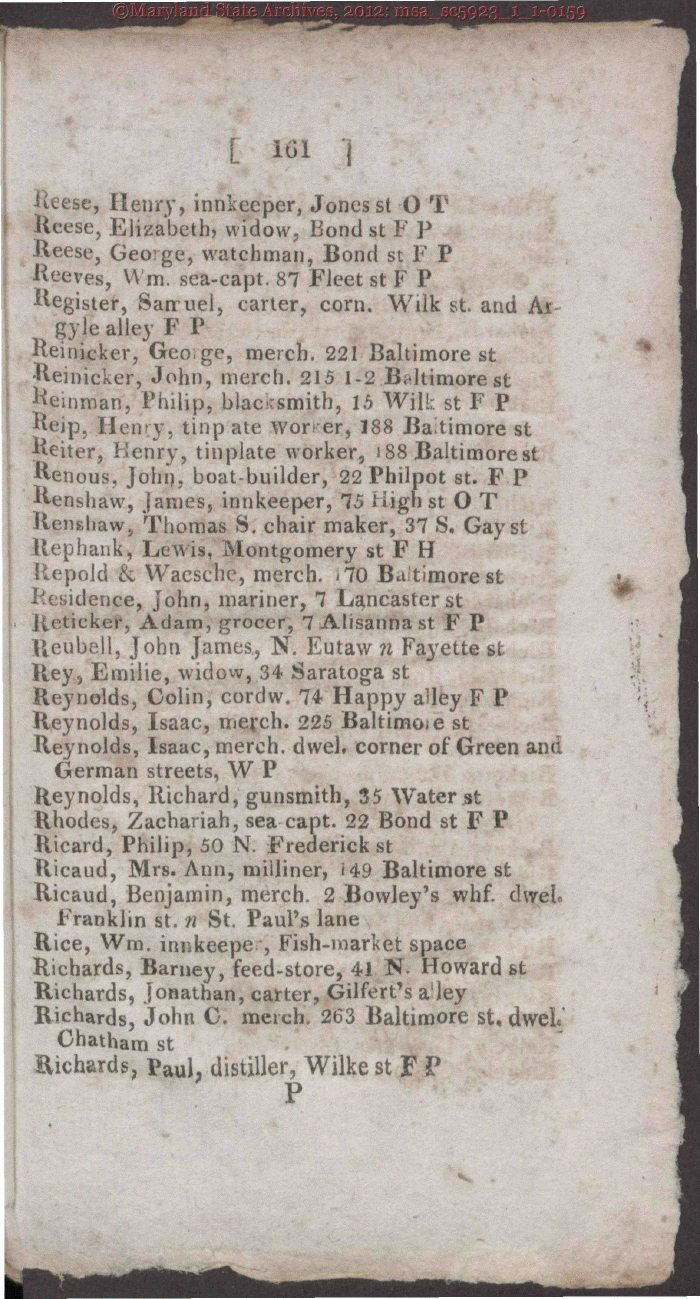 ©Maryland State Archives, 2012: msa_sc5923_1_1-0159
[ 161 ]
Reese, Henry, innkeeper, Jones st O T
Reese, Elizabeth, widow, Bond st F P
Reese, George, watchman, Bond st F P
Reeves, Wm. sea-capt. 87 Fleet st F P
Register, Samuel, carter, corn. Wilk st. and Ar-
gyle alley F P
Reinicker, George, merch. 221 Baltimore st
Reinicker, John, merch. 215 1-2 Baltimore st
Reinman, Philip, blacksmith, 15 Wilk st F P
Reip, Henry, tinplate worker, 188 Baltimore st
Reiter, Henry, tinplate worker, 188 Baltimore st
Renous, John, boat-builder, 22 Philpot st. F P
Renshaw, James, innkeeper, 75 High st O T
Renshaw, Thomas S. chair maker, 37 S. Gay st
Rephank, Lewis, Montgomery st F H
Repold & Waesche, merch. 170 Baltimore st
Residence, John, mariner, 7 Lancaster st
Reticker, Adam, grocer, 7 Alisanna st F P
Reubell, John James, N. Eutaw n Fayette st
Rey, Emilie, widow, 34 Saratoga st
Reynolds, Colin, cordw. 74 Happy alley F P
Reynolds, Isaac, merch. 225 Baltimore st
Reynolds, Isaac, merch. dwel. corner of Green and
German streets, W P
Reynolds, Richard, gunsmith, 35 Water st
Rhodes, Zachariah, sea-capt. 22 Bond st F P
Ricard, Philip, 50 N. Frederick st
Ricaud, Mrs. Ann, milliner, 149 Baltimore st
Ricaud, Benjamin, merch. 2 Bowley's whf. dwel.
Franklin st. n St. Paul's lane
Rice, Wm. innkeeper, Fish-market space
Richards, Barney, feed-store, 41 N. Howard st
Richards, Jonathan, carter, Gilfert's alley
Richards, John C. merch. 263 Baltimore st. dwel.
Chatham st
Richards, Paul, distiller, Wilke st F P
P